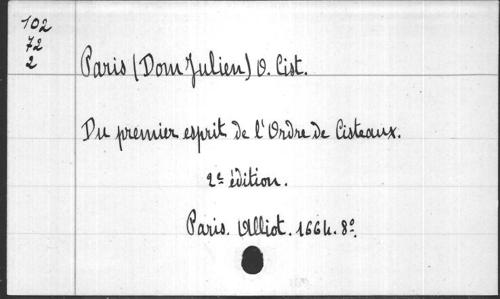 102
72
2
Paris (Dom Julien) O. Cist.
Du premier esprit de l'Ordre de Cisteaux.
2e édition.
Paris. Alliot. 1664. 8°.